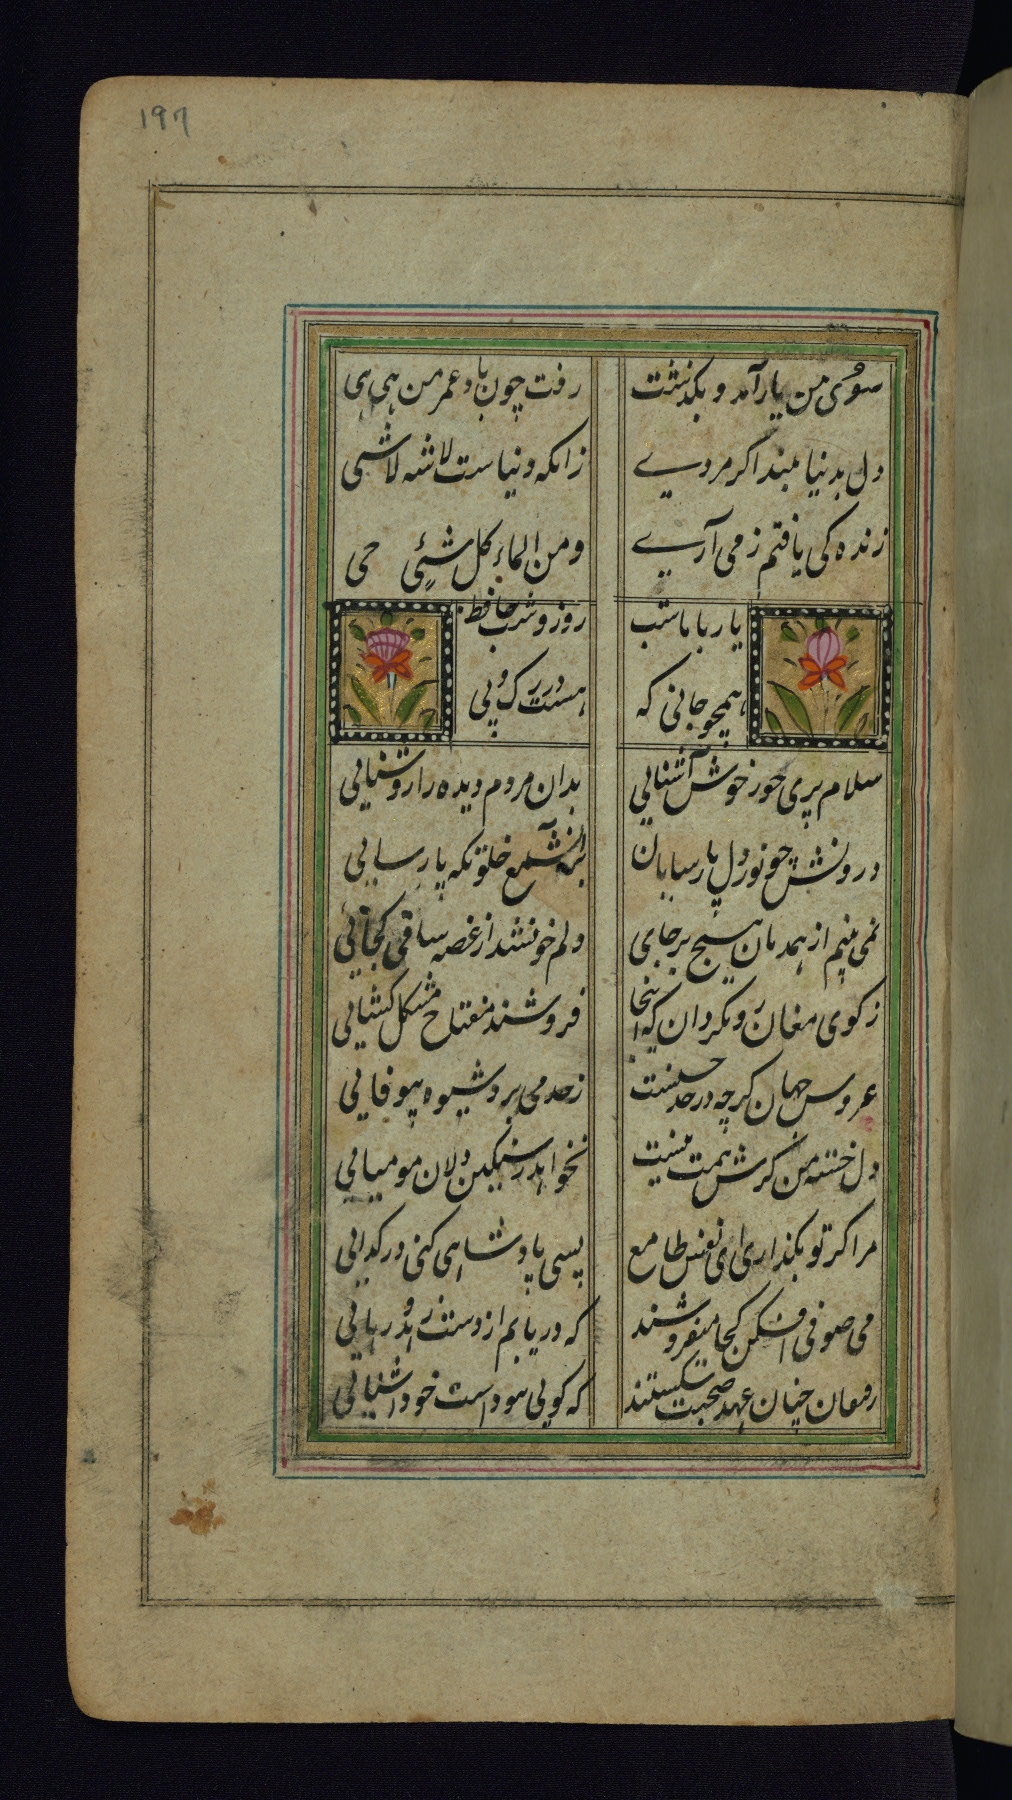 ۱۹۷
سوی من یار آمد و بگذشت رفت چون باد عمر من هی هی
دل بدنیا مبند اگر مردی زانکه دنیاست لاشه لاشی
زنده کی یافتم ز می آری ومن الماء کل شئی حی
یار با ماشب روز و شب حافظ
همچو جانی که هست در رک و پی
سلامی چو بوی خوش آشنایی بدان مردم دیده را روشنایی
درودش چو نور دل پارسایان بدان شمع خلوتکه پارسایی
نمی بینم از همدمان هیچ بر جای دلم خونشد از غصه ساقی کجائی
ز کوی مغان رو مکردان که اینجا فروشند مفتاح مشکل کشائی
عروس جهان کرچه در حد حسنست ز حد می برد شیوه بیوفائی
دل خسته من کرش همت هست نخواهد ز سنکین دلان مومیایی
مرا کر تو بکذاری ای نفس طامع بسی پادشاهی کنی در کدائی
می صوفی افکن کجا میفروشند که دریابم از دست زهد ریائی
رفیقان چنان عهد صحبت شکستند که کویی نبودست خود آشنائی